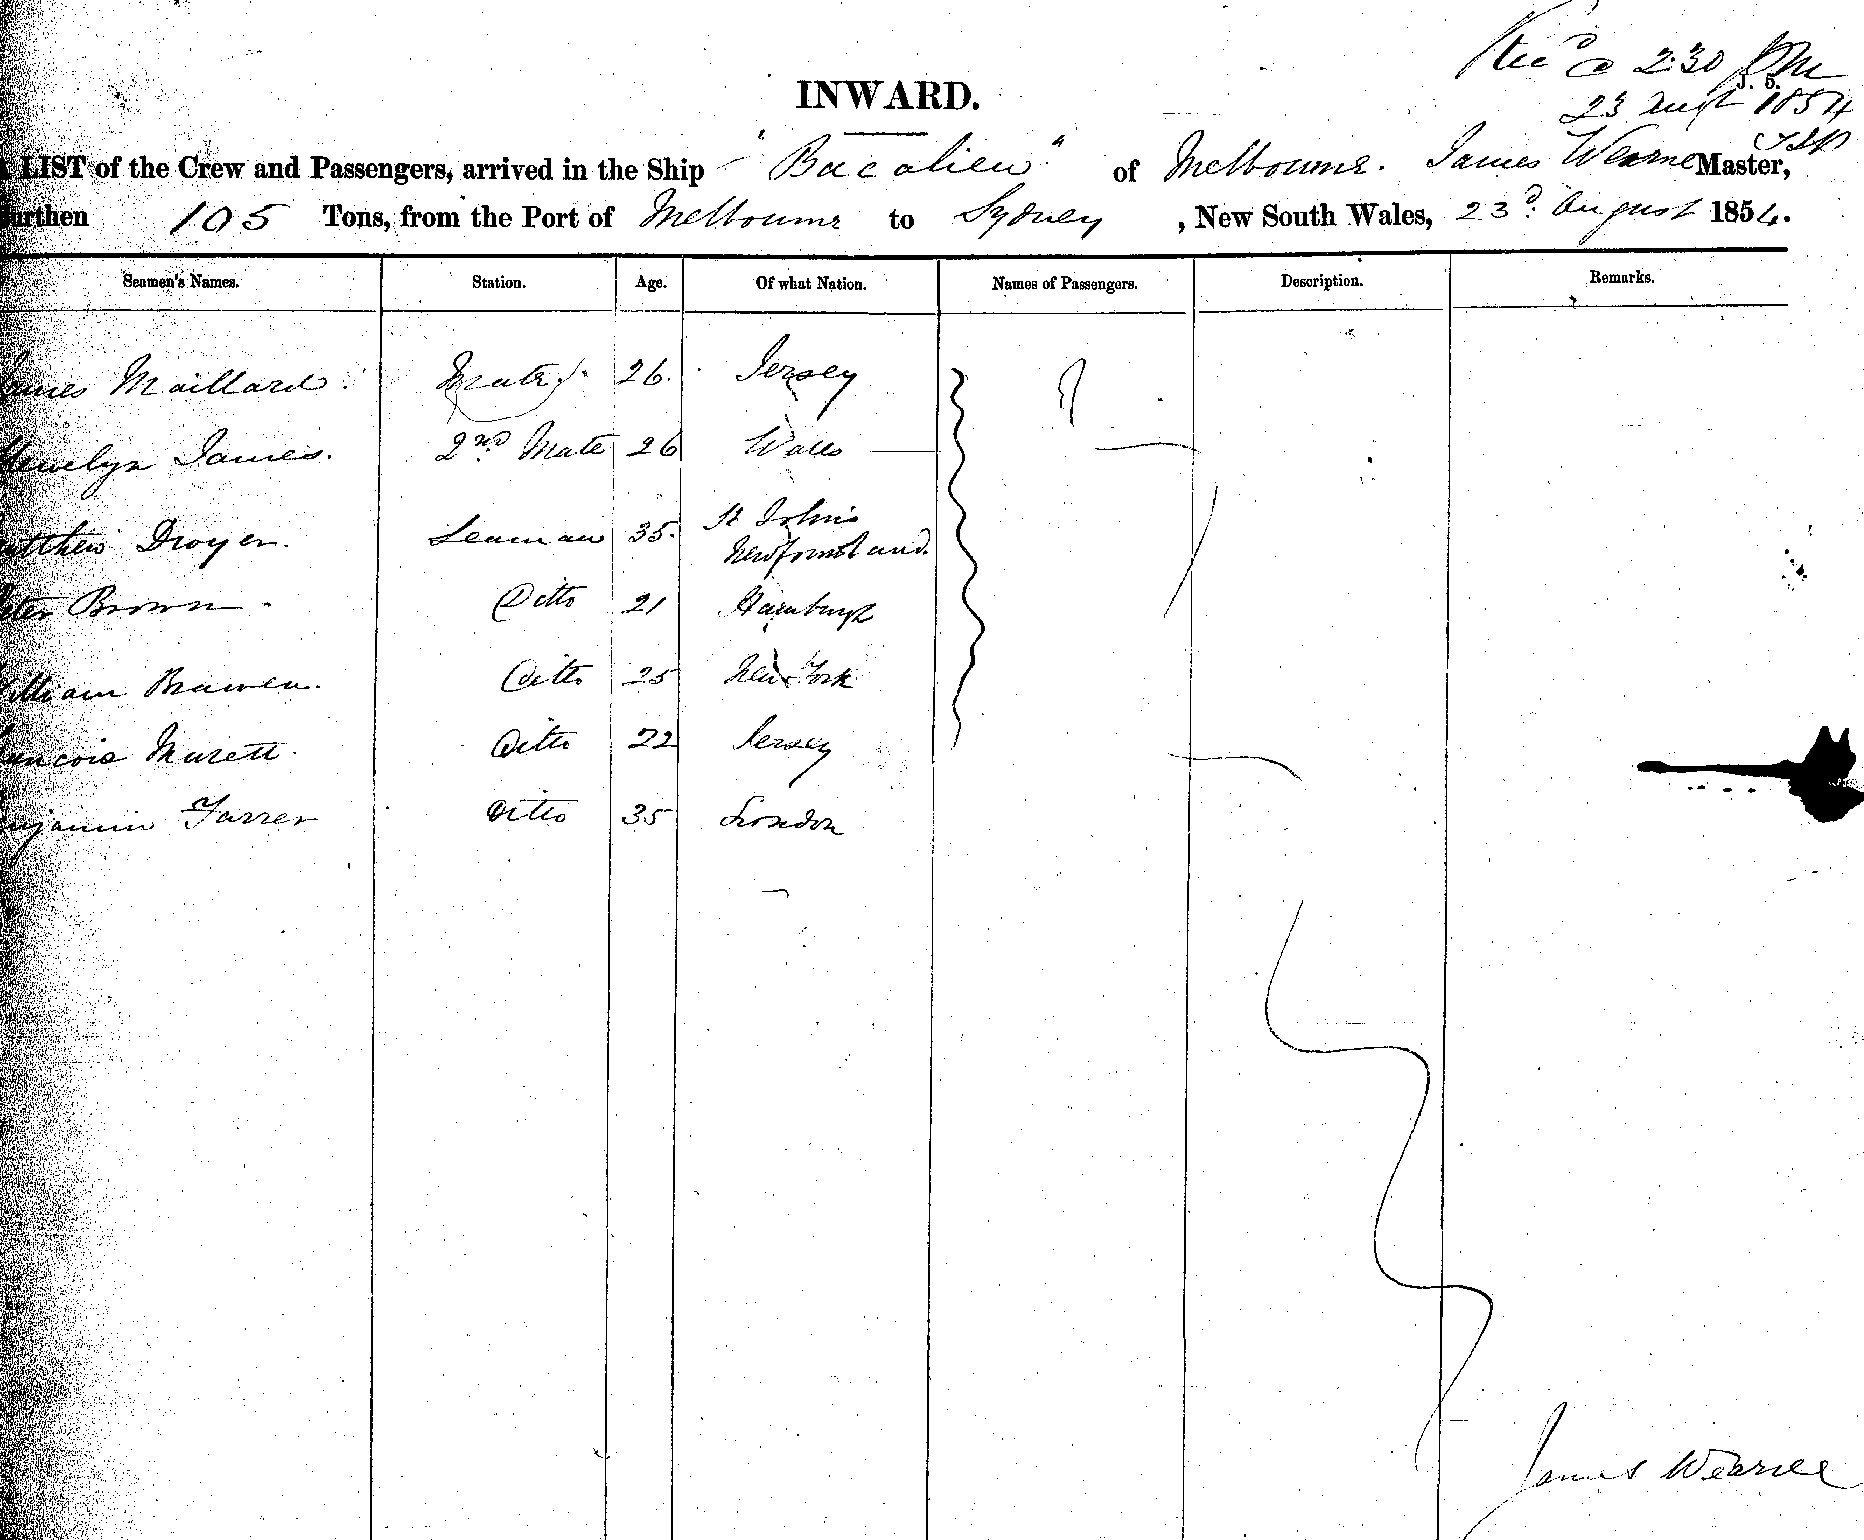 Rec'd @ 2.30 PM
23 Augt 1854
INWARD.
LIST of the Crew and Passengers, arrived in the Ship "Bacalieu" of Melbourne. James Wearne Master,
urthen 105 Tons, from the Port of Melbourne to Sydney, New South Wales, 23d. August 1854.
Seamen's Names. Station. Age. Of what Nation. Names of Passengers. Description. Remarks.
ames Maillard. Mate 26. Jersey
lewelyn James. 2nd Mate 26 Wales
atthew Dwyer. Seaman 35. St John's
Newfoundland.
eter Brown Ditto 21 Hamburgh
illiam Ditto 25 New York
ancois Marett Ditto 22 Jersey
njamin Farrer Ditto 35 London
James Wearne